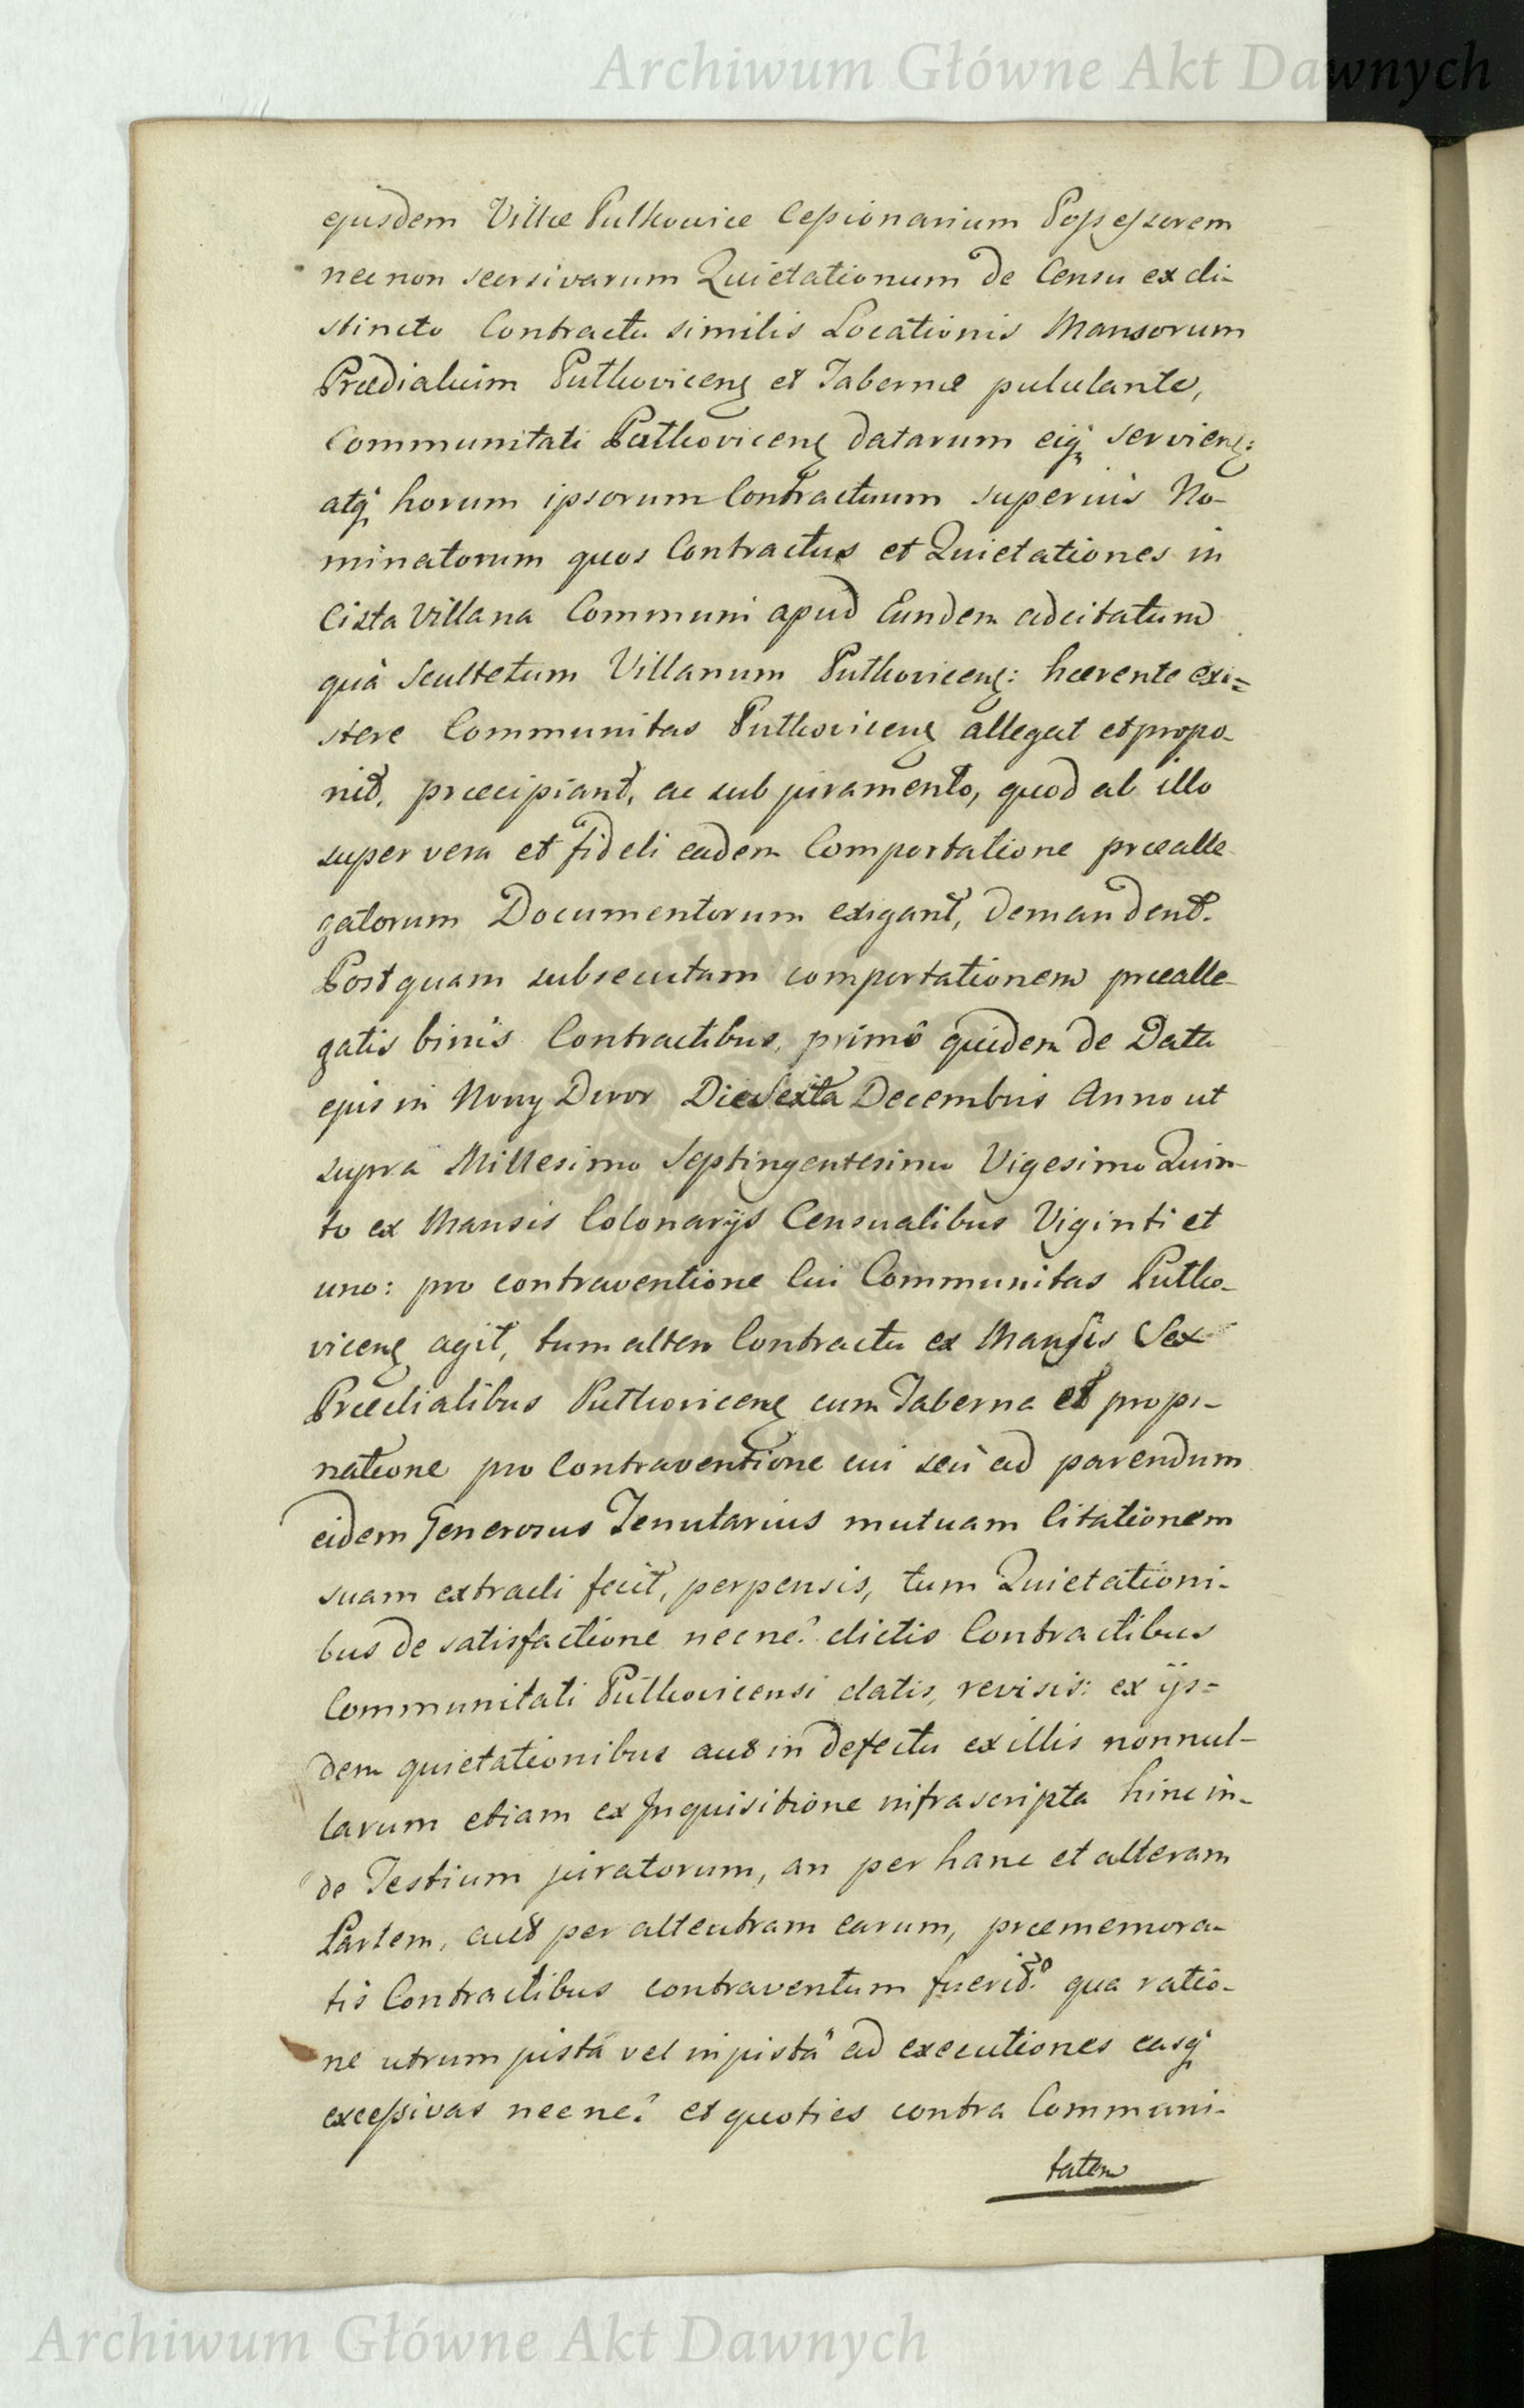 Archiwum Główne Akt Dawnych
ejusdem Villæ Putkowice Cessionarium Possessorem
nec non seorsivarum Quietationum de Censu ex di-
stincto Contractu similis Locationis Mansorum
Prædialium Putkovicens et Tabernæ pululante,
Communitati Putkovicens datarum eiq. serviens:
atq. horum ipsorum Contractuum superius No-
minatorum quos Contractus et Quietationes in
Cista Villana Communi apud Eundem adcitatum
quà Scultetum Villanum Putkovicens: hærente exi=
stere Communitas Putkovicens allegat et propo-
nit, præcipiant, ac sub juramento, quod ab illo
super vera et fideli eadem Comportatione prealle-
gatorum Documentorum exigant, demandent.
Post quam subsecutam comportationem præalle-
gatis binis Contractibus, primô quidem de Data
ejus in Nowy Dwor Die Sexta Decembris Anno ut
supra Millesimo Septingentesimo Vigesimo Quin-
to ex Mansis Colonarijs Censualibus Viginti et
uno: pro contraventione Cui Communitas Putko-
vicens agit, tum altero Contractu ex Mansis Sex
Prædialibus Putkovicens cum Taberna et propi-
natione pro Contraventione cui seù ad parendum
eidem Generosus Tenutarius mutuam Citationem
suam extradi fecit, perpensis, tum Quietationi-
bus de satisfactione necne? dictis Contractibus
Communitati Putkovicensi datis, revisis: ex ijs=
dem quietationibus aut in defectu ex illis nonnul-
larum etiam ex Inquisitione infrascripta hinc in-
de Testium juratorum, an per hanc et alteram
Partem, aut per alteutram earum, præmemora-
tis Contractibus contraventum fuerit? qua ratio-
ne utrum justâ vel injustâ ad executiones easq.
excessivas necne? et quoties contra Communi-
tatem
Archiwum Główne Akt Dawnych